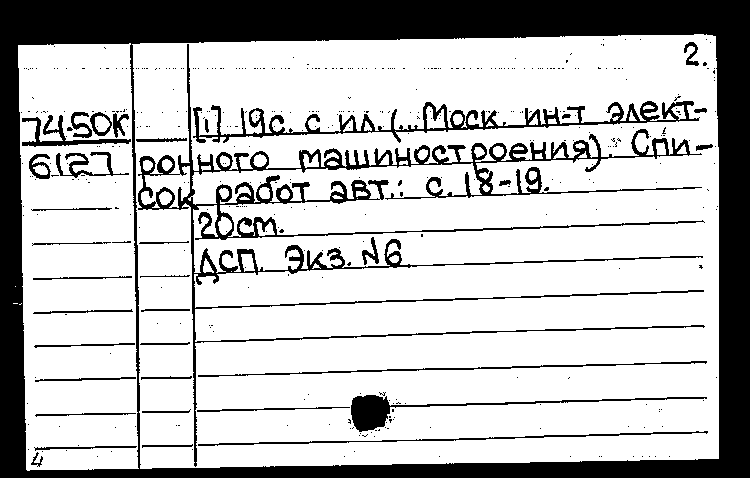 2.
74-50К [1], 19с. с ил. (... Моск. ин-т элект-
6127 ронного машиностроения). Спи-
сок работ авт.: с. 18-19.
20см.
ДСП. Экз. №6
4